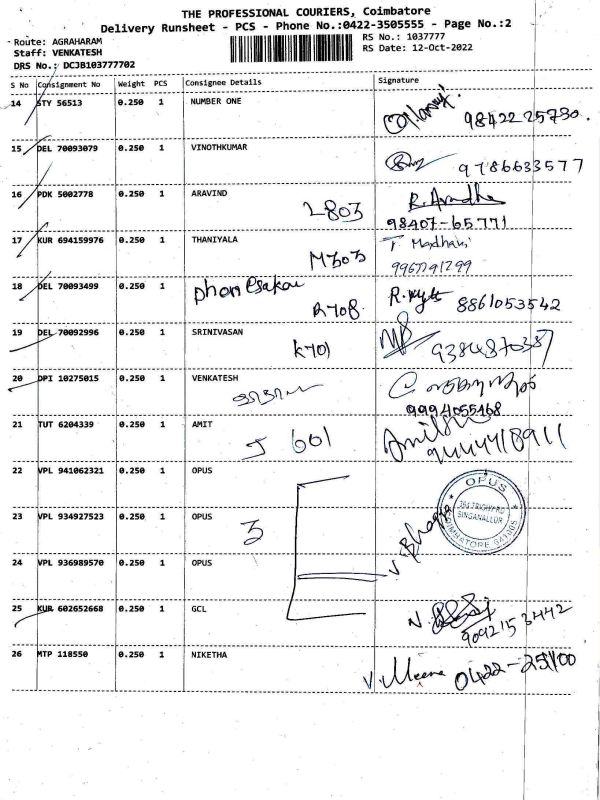 THE PROFESSIONAL COURIERS, Coimbatore
Delivery Runsheet - PCS - Phone No.:0422-3505555 - Page No.:2
Route: AGRAHARAM
Staff: VENKATESH
DRS No.: DCJB103777702
RS No.: 1037777
RS Date: 12-Oct-2022
S No Consignment No Weight PCS Consignee Details Signature
14 STY 56513 0.250 1 NUMBER ONE
9842225730.
15 DEL 70093079 0.250 1 VINOTHKUMAR
9786633577
16 PDK 5002778 0.250 1 ARAVIND L803
98407-65771
17 KUR 694159976 0.250 1 THANIYALA T. Madhavi
M303
18 DEL 70093499 0.250 1 8861053542
R708
19 DEL 70092996 0.250 1 SRINIVASAN
K701 9384870387
20 DPI 10275015 0.250 1 VENKATESH
9994055468
21 TUT 6204339 0.250 1 AMIT
J 601 9444418911
22 VPL 941062321 0.250 1 OPUS
OPUS
SINGANALLUR
23 VPL 934927523 0.250 1 OPUS 3
24 VPL 936989570 0.250 1 OPUS
25 KUR 602652668 0.250 1 GCL
9092153442
26 MTP 118550 0.250 1 NIKETHA
V. Meena